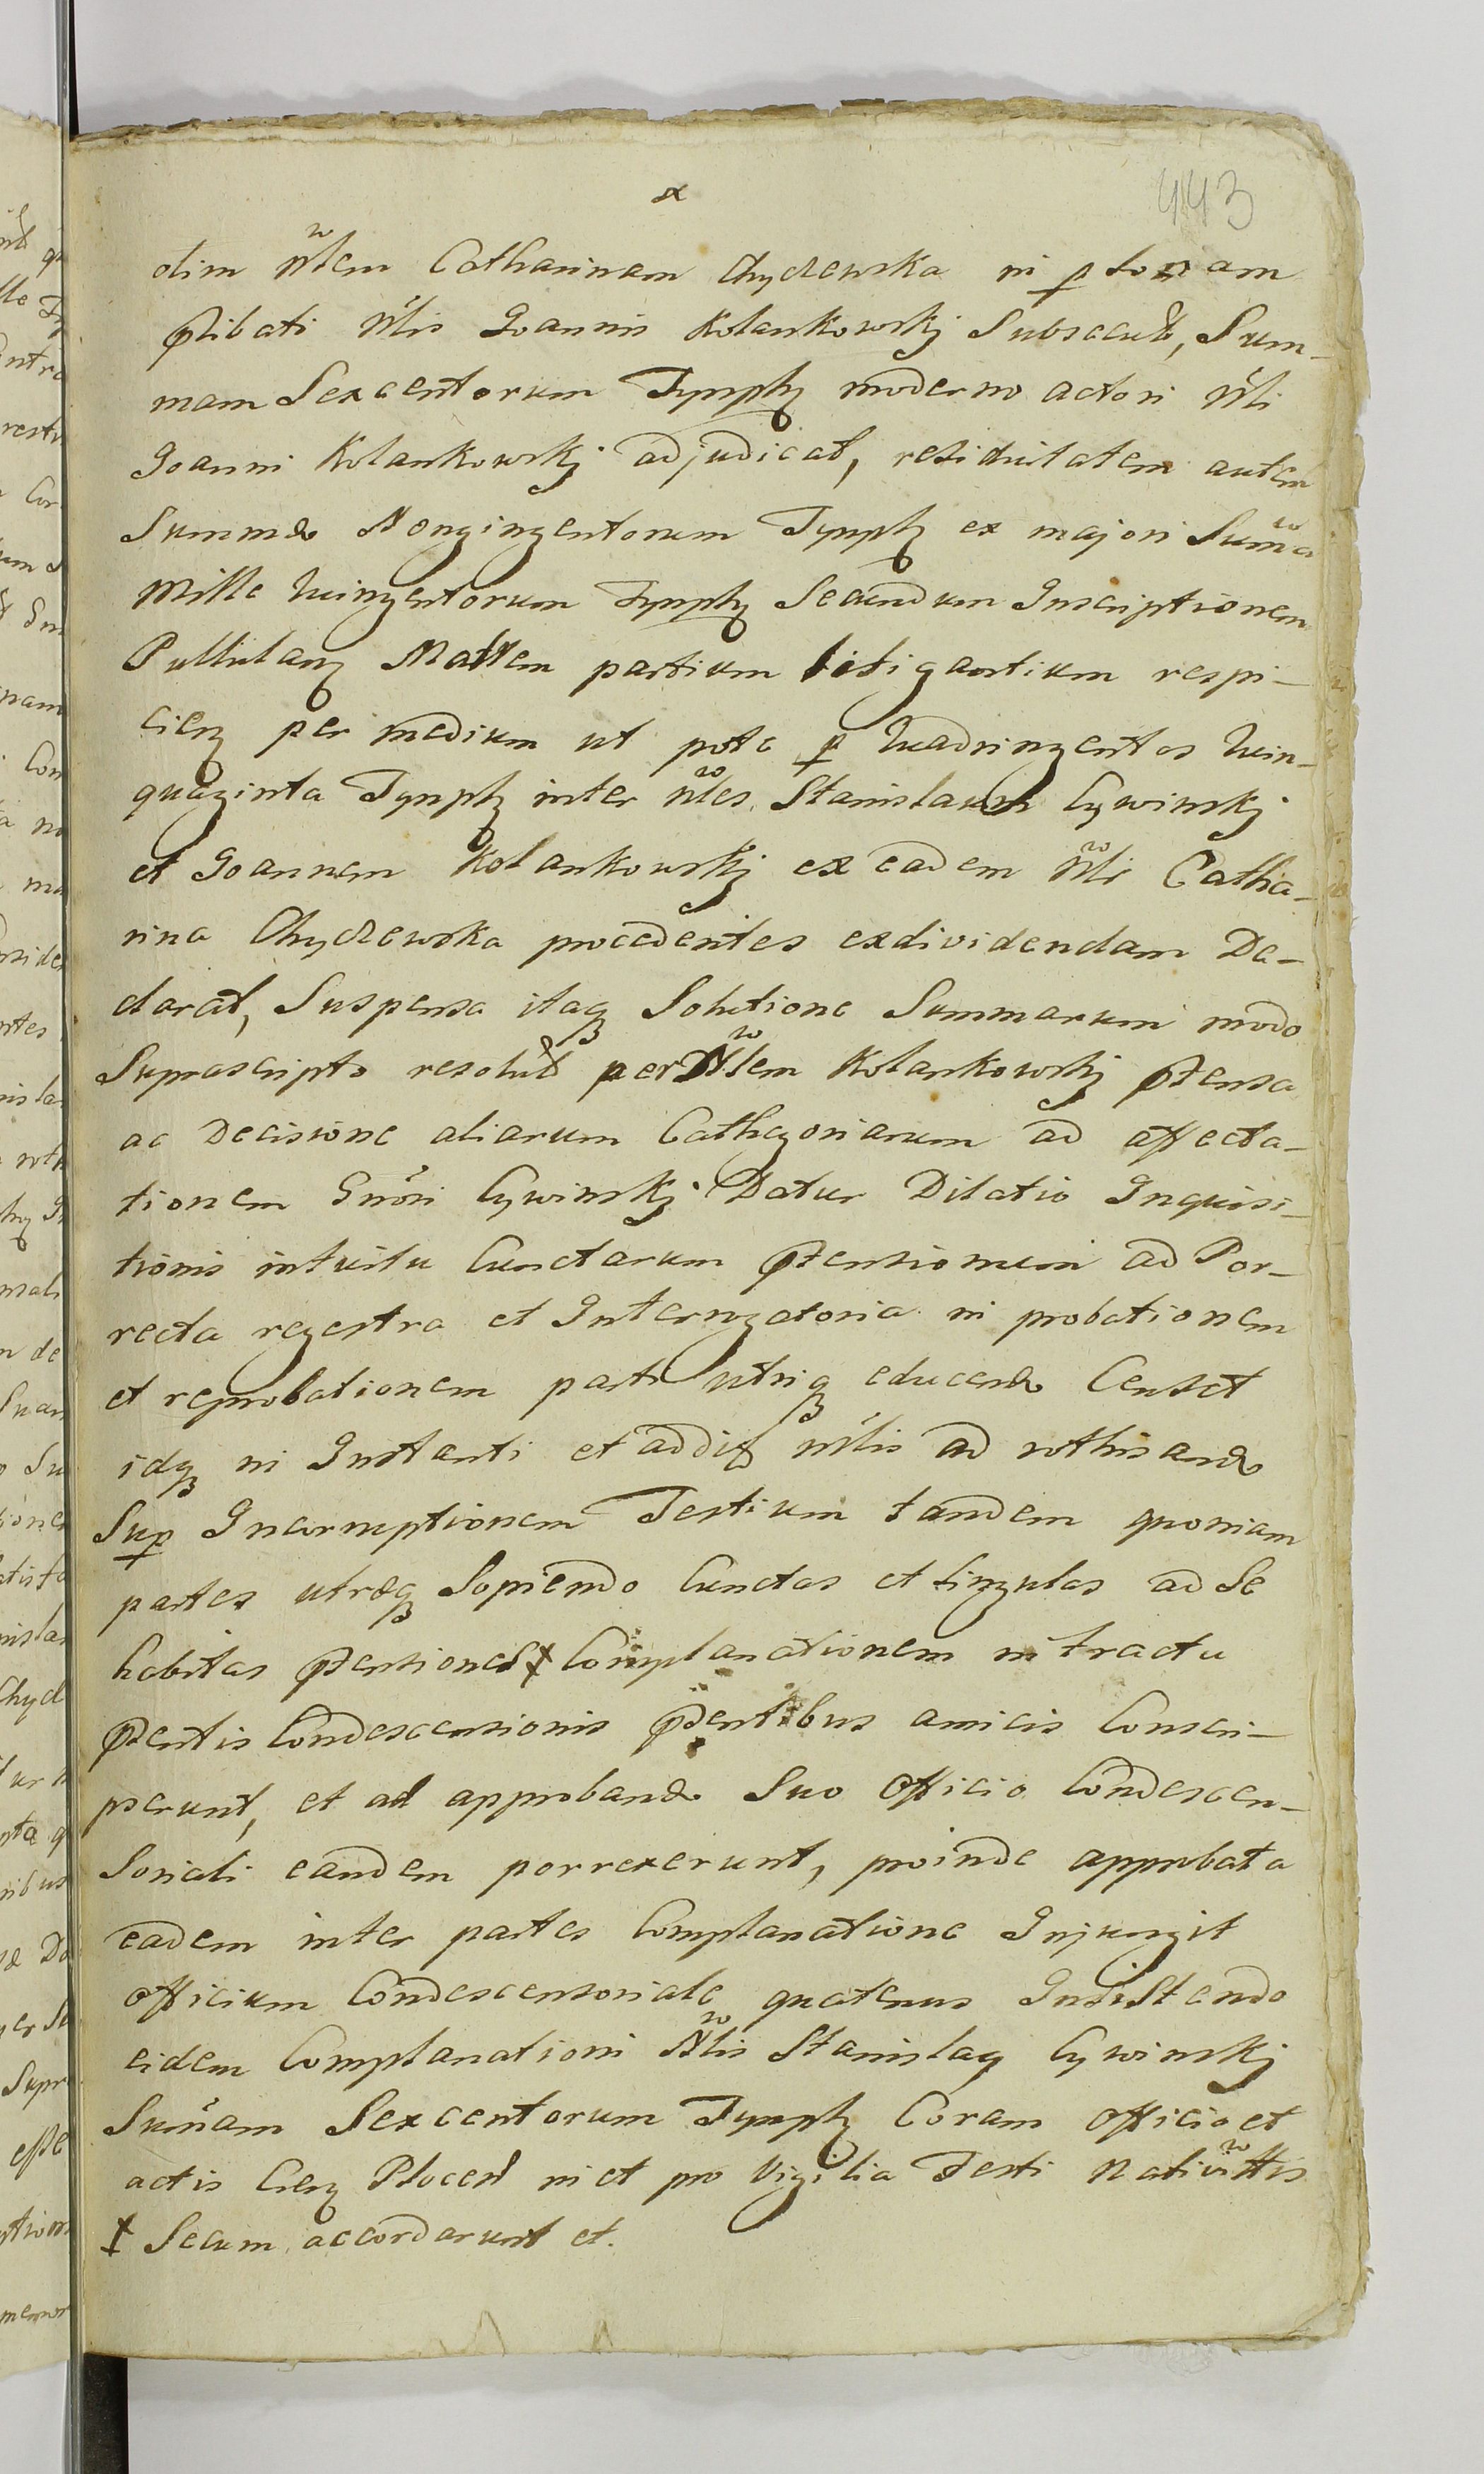 443
olim Nlem Catharinam Chyczewska in psonam
plibati Nlis Joannis Kolankowskj Subsecut, Sum-
mam Sexcentorum Tymph moderno actori Nli
Joanni Kolankowskj adjudicat, residuitatem autem
Summæ Nongingentorum Tymph ex majori Suma
Mille Quingentorum Tymph Secundum Inscriptionem
Pullulanz Matrem partium litigantium respi-
cienz per medium ut pote p Quadringentos Quin-
quaginta Tymph inter Nles Stanislaum Cywinskj
et Joannem Kolankowskj ex eadem Nli Catha-
rina Chyczewska procedentes exdividendam De-
clarat, Suspensa itaq Solutione Summarum modo
Suprascripto resolut per Nlem Kolankowskj ptensa
ac Decisione aliarum Cathegoriarum ad affecta-
tionem Gnosi Cywinskj Datur Dilatio Inquisi-
tionis intuitu Cunctarum ptensionum ad Por-
recta regestra et Interrogatoria in probationem
et reprobationem parti utriq educendæ Censet
idq in Instanti et addit Nlis ad rothisandæ
Sup Incorruptionem Testium tandem quoniam
partes utræq Sopiendo Cunctas et singulas ad Se
habitas ptensiones ⴕ Complanationem in tractu
psentis Condescensionis psentibus amicis Conscri-
pserunt, et ad approbandæ Suo Officio Condescen-
soriali eandem porrexerunt, proinde approbata
eadem inter partes Complanatione Injungit
officium Condescensoriale quatenus Insistendo
eidem Complanationi Nlis Stanislaq Cywinskj
Sumam Sexcentorum Tymph Coram officio et
actis Crenz Plocen in et pro Vigilia Festi Nativittis
ⴕ Secum accordarunt et.